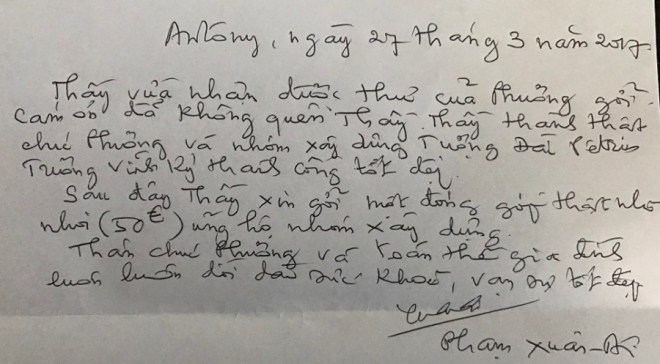 Antony, ngày 27 tháng 3 năm 2017.
Thầy vừa nhận được thư của Phưởng gởi.
Cám ơn đã không quên Thầy. Thầy thành thật
chúc Phưởng và nhóm xây dựng Tượng Đài Petrus
Trương Vĩnh Ký thành công tốt đẹp.
Sau đây Thầy xin gởi một đóng góp thật nhỏ
nhoi (50€) ủng hộ nhóm xây dựng.
Thân chúc Phưởng và toàn thể gia đình
luôn luôn dồi dào sức khoẻ, vạn sự tốt đẹp
Phạm Xuân-Ái